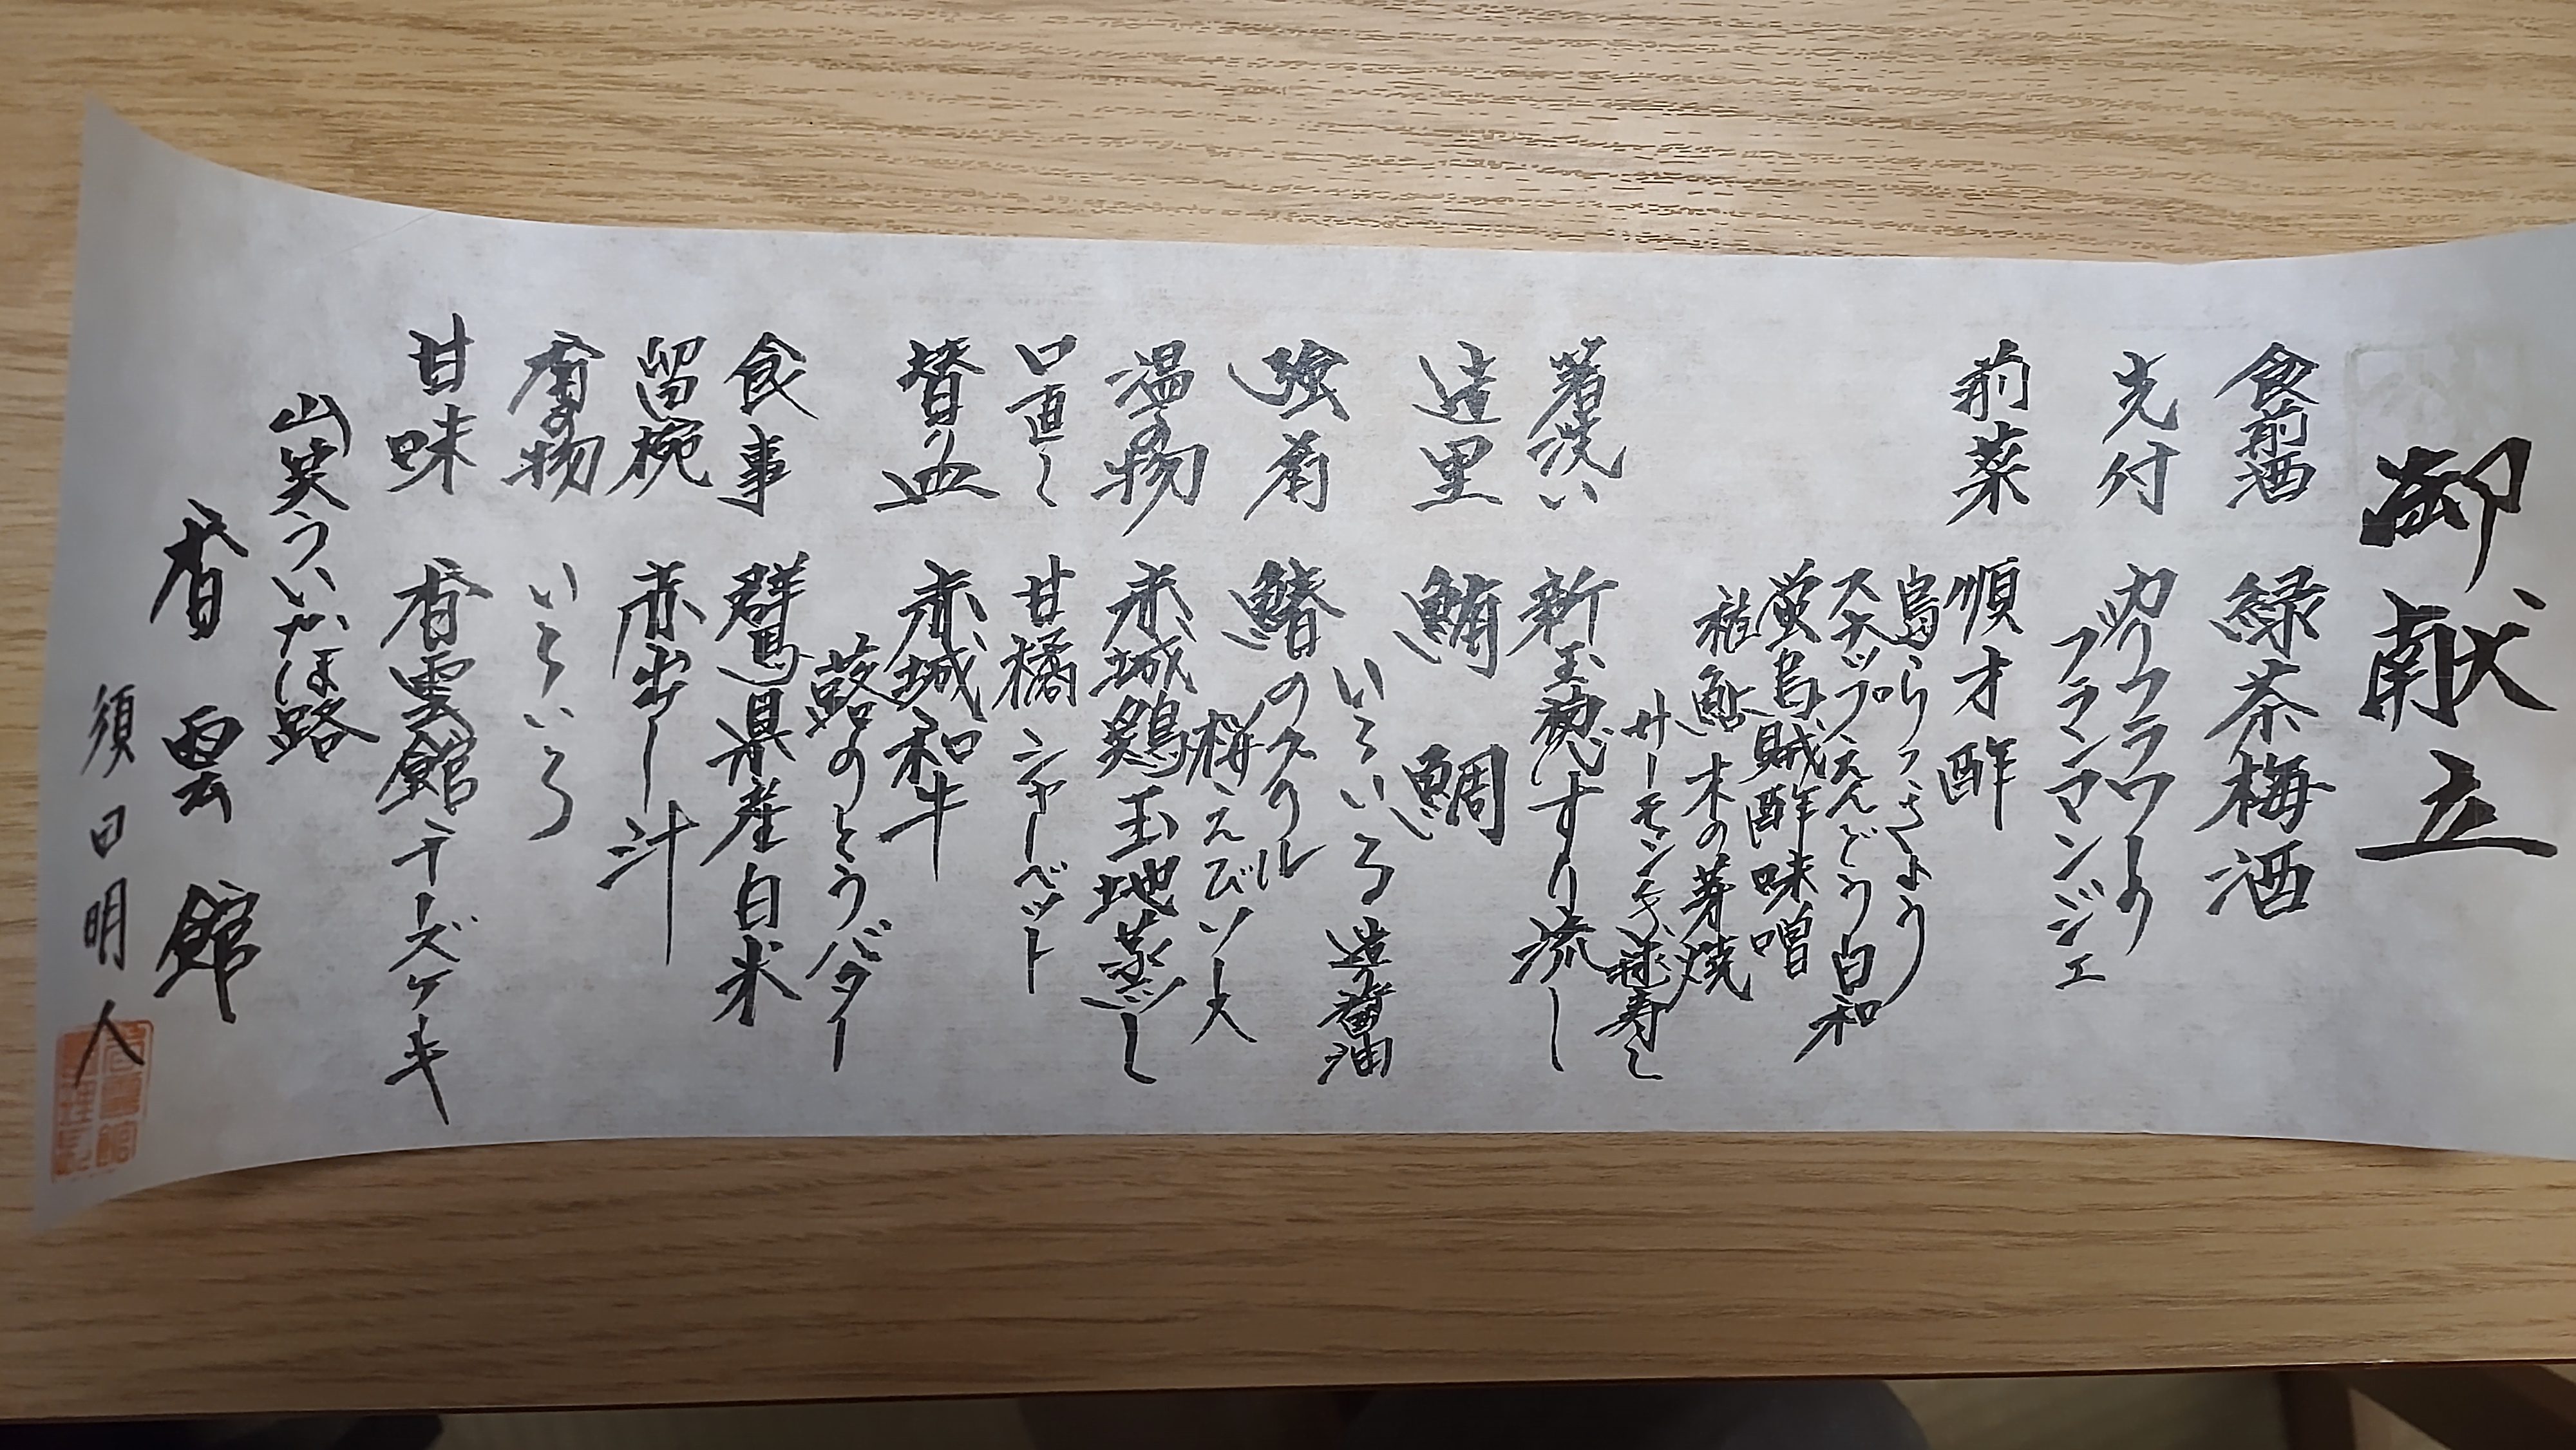 御献立
食前酒 緑茶梅酒
先付 カリフラワーの
ブラマンジェ
前菜 順才酢
島らっきょう
スナップえんどう白和
蛍烏賊酢味噌
稚鮎木の芽焼
サーモン手毬寿し
箸洗い 新玉葱すり流し
造里 鮪 鯛
いろいろ 造り醤油
強肴 鰆のスクリル
桜えびソース
温の物 赤城鶏玉地蒸し
口直し 甘橘シャーベット
賛の皿 赤城和牛
蕗のとうバター
食事 群馬県産白米
留椀 赤出し汁
香の物 いろいろ
甘味 香雲館チーズケーキ
山笑ういかほ路
香雲館
須田明人